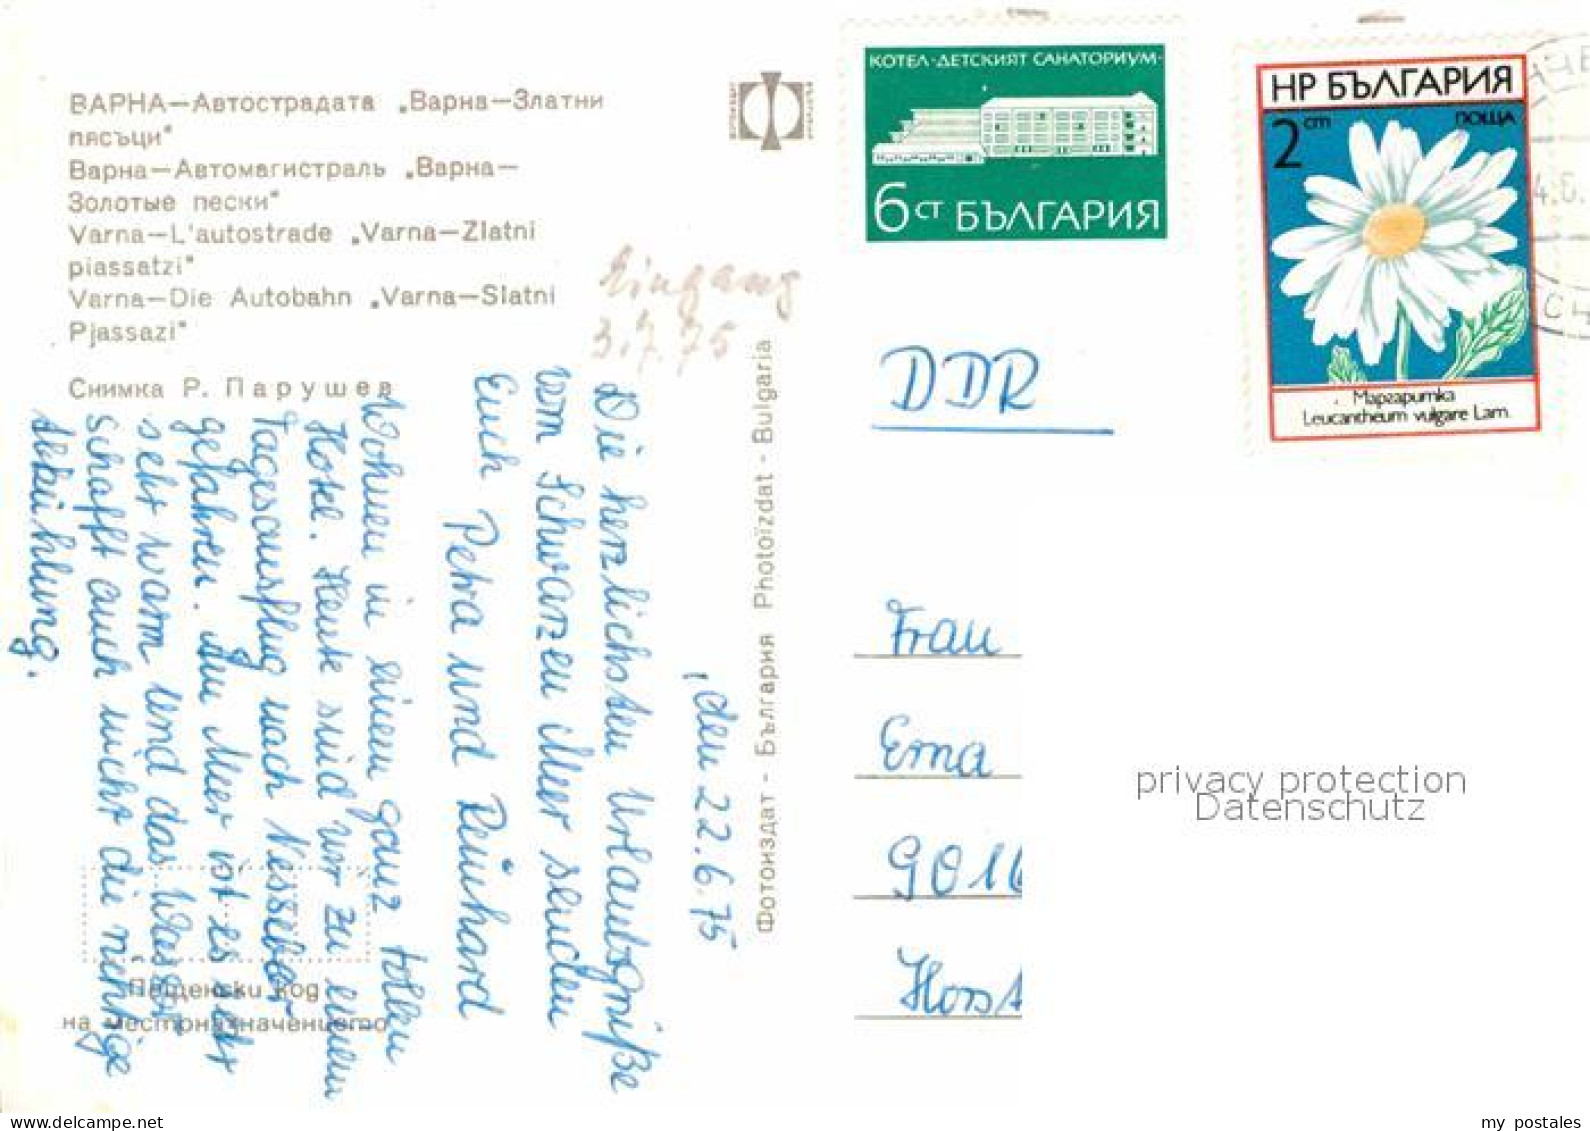 ВАРНА—Автострадата „Варна—Златни
пясъци"
Варна—Автомагистраль „Варна—
Золотые пески"
Varna—L'autostrade „Varna—Zlatni
piassatzi"
Varna—Die Autobahn „Varna—Slatni
Pjassazi"
Снимка Р. Парушев
Eingang
3.7.75
, den 22.6.75
Die herzlichsten Urlaubsgrüße
vom Schwarzen Meer senden
Euch
Petra und Reinhard
Wohnen in einem ganz tollen
Hotel. Heute sind wir zu einem
Tagesausflug nach Nessebar
gefahren. Am Meer ist es sehr
sehr warm und das Wasser
schafft auch nicht die richtige
Abkühlung.
Пощенски код
на местоназначението
Фотоиздат - България Photoïzdat - Bulgaria
КОТЕЛ-ДЕТСКИЯТ САНАТОРИУМ-
6 СТ БЪЛГАРИЯ
НР БЪЛГАРИЯ
2 cm ПОЩА
Маргаритка
Leucantheum vulgare Lam.
DDR
Frau
Erna
9016
Horst
privacy protection
Datenschutz
my_postales